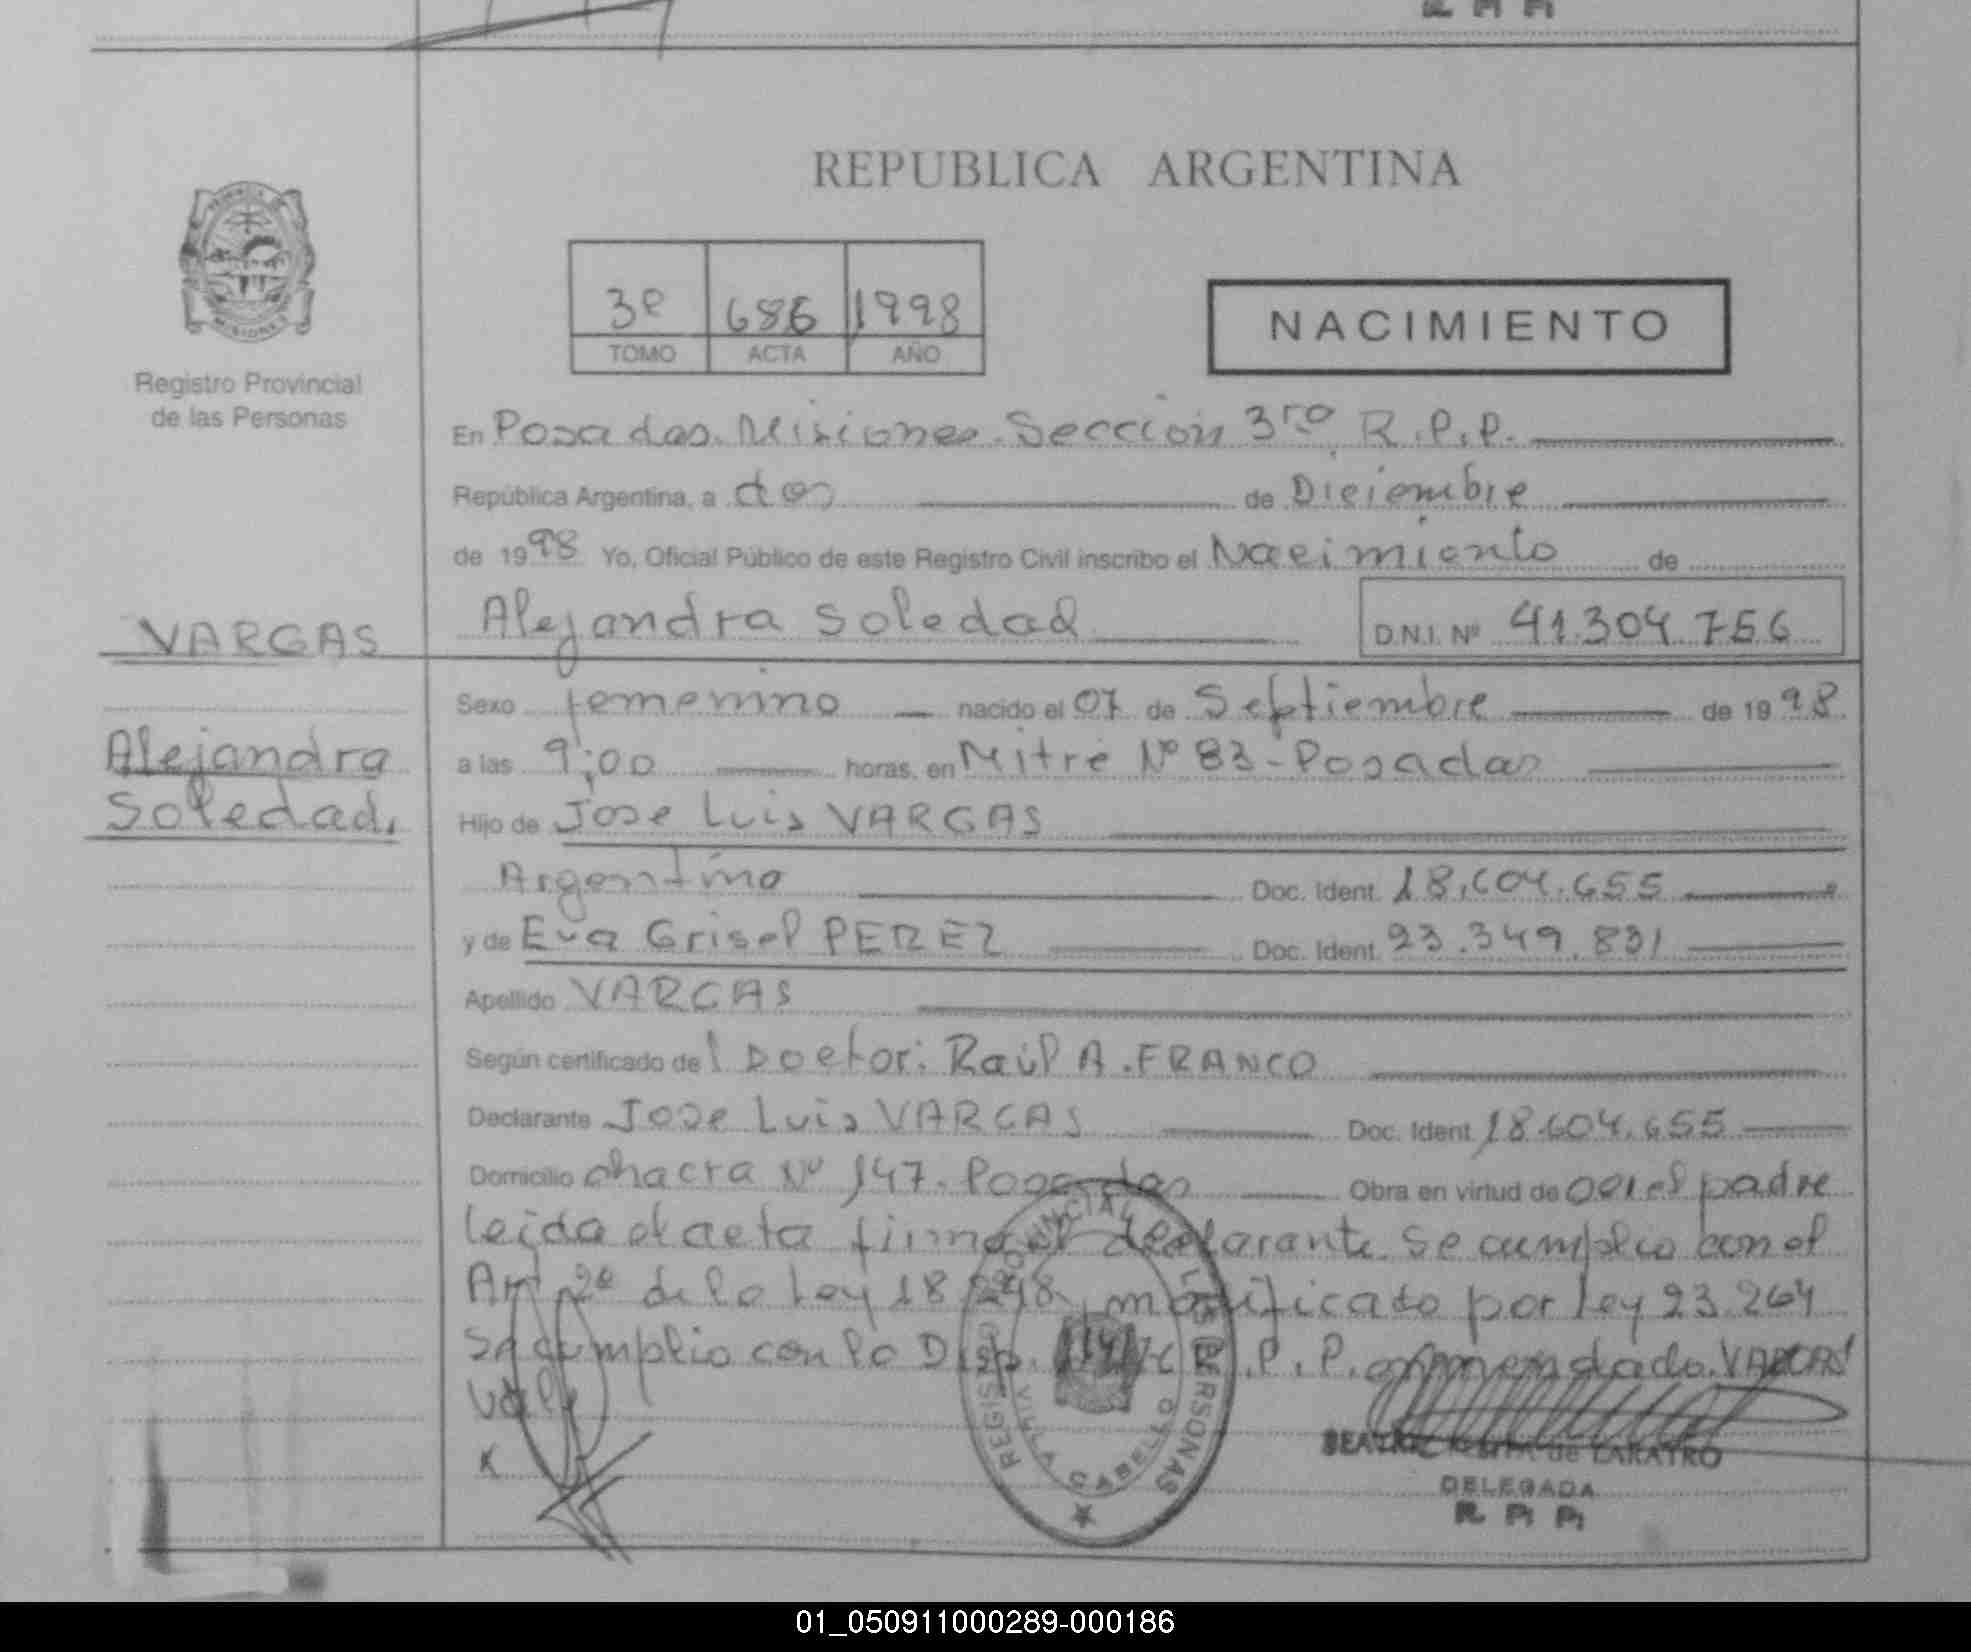 R. P. P.
REPUBLICA ARGENTINA
PROVINCIA DE
MISIONES
Registro Provincial
de las Personas
3º 686 1998
TOMO ACTA AÑO
NACIMIENTO
En Posadas. Misiones. Sección 3ra R.P.P.
República Argentina, a dos de Diciembre
de 1998 Yo, Oficial Público de este Registro Civil inscribo el Nacimiento de
VARGAS
Alejandra Soledad
D.N.I. Nº 41.304.756
Sexo femenino nacido el 07 de Septiembre de 1998
Alejandra
Soledad.
a las 9:00 horas, en Mitre Nº 83 - Posadas
Hijo de Jose Luis VARGAS
Argentino Doc. Ident. 18.604.655
y de Eva Grisel PEREZ Doc. Ident. 23.349.831
Apellido VARGAS
Según certificado del Doctor: Raúl A. FRANCO
Declarante Jose Luis VARGAS Doc. Ident. 18.604.655
Domicilio chacra Nº 147. Posadas Obra en virtud de ser el padre
leida el acta firma el declarante. Se cumplio con el
Art 2º de la Ley 18.248 modificado por ley 23.264
Se cumplio con la Disp. R.P.P. enmendado. VARGAS
Vale
x
REGISTRO PROVINCIAL DE LAS PERSONAS
VILLA CABELLO
BEATRIZ de LARATRO
DELEGADA
R. P. P.
01_050911000289-000186